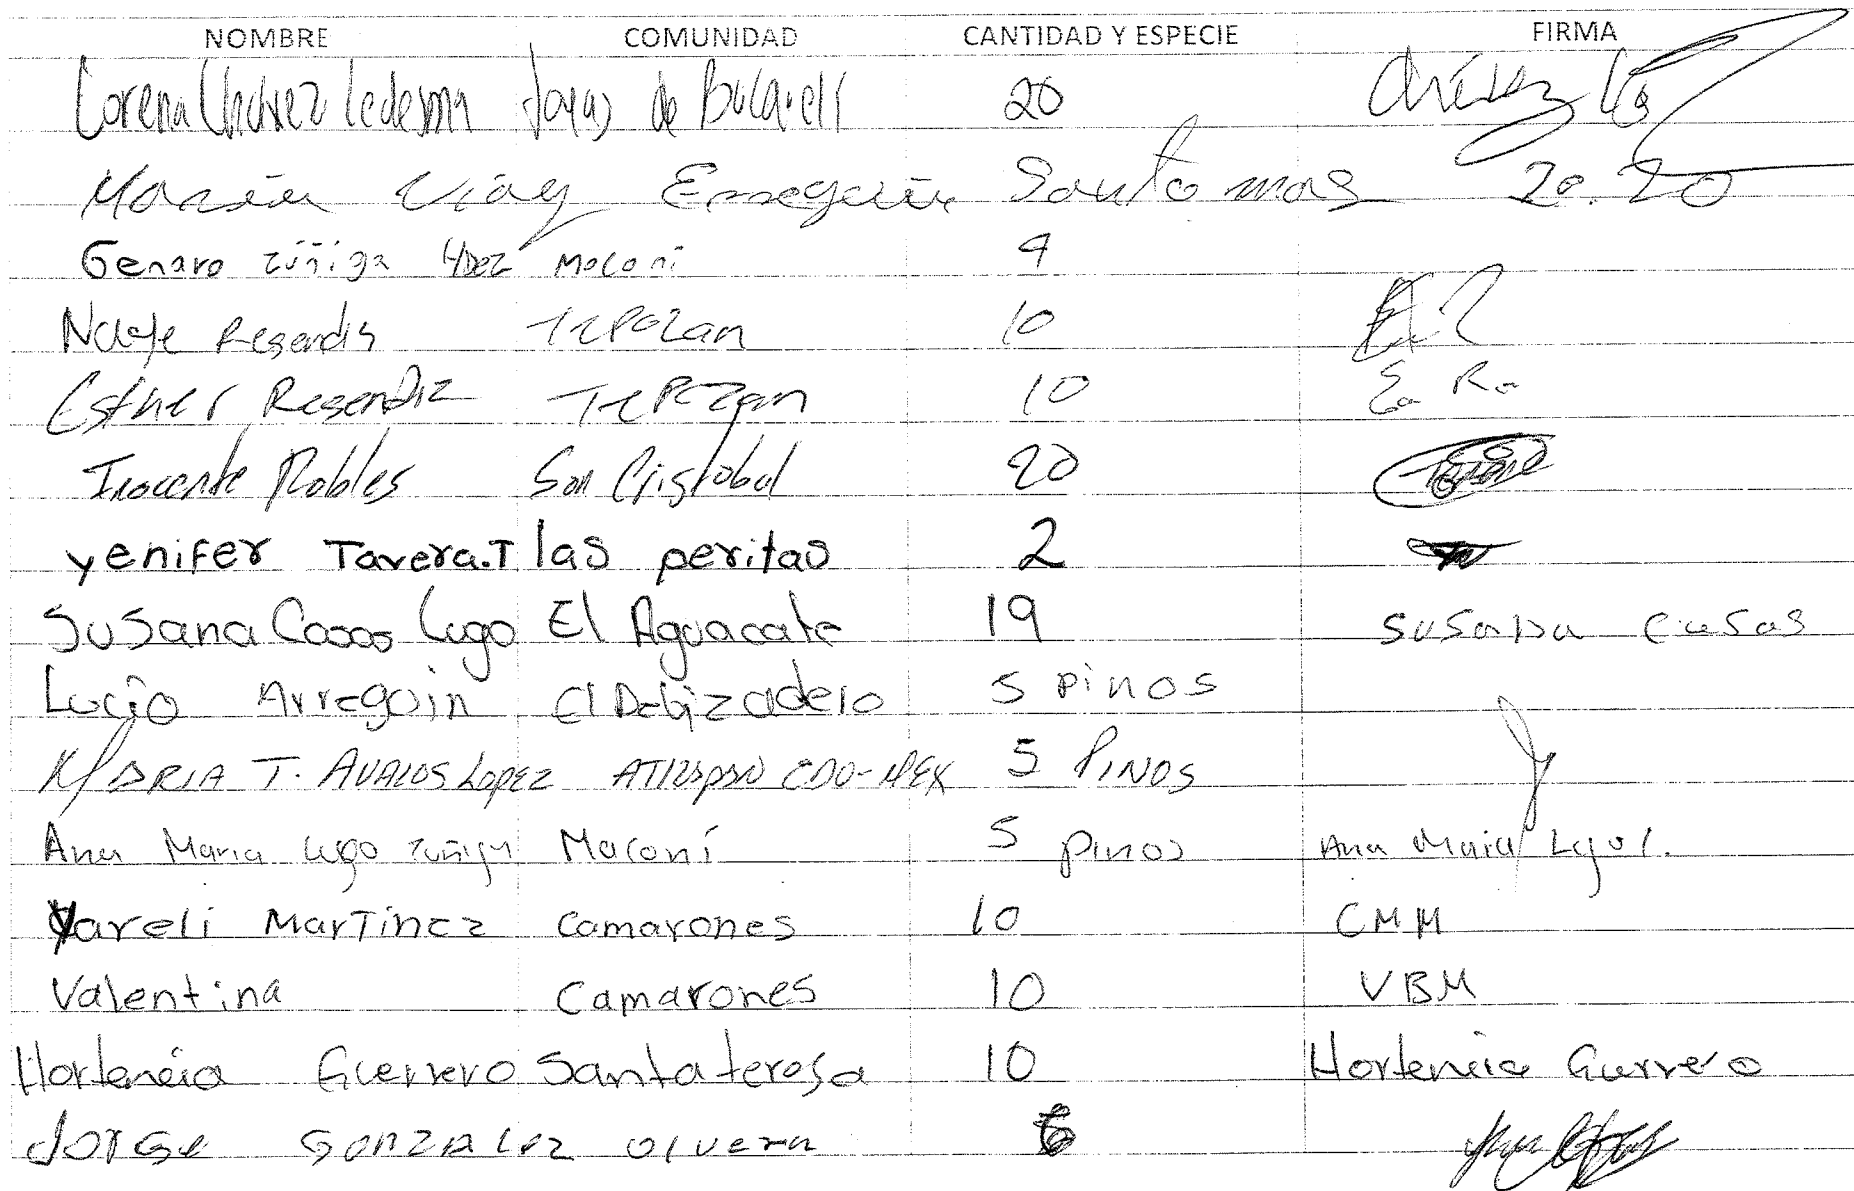 NOMBRE COMUNIDAD CANTIDAD Y ESPECIE FIRMA
Lorena Chavez Ledesma Joyas de Bucareli 20 Chávez
20.20
Genaro zúñiga Hdez Maconi 9
Resendis TEPOZAN 10
Esther Resendiz TEPOZan 10 E. R.
Inocente Robles San Cristobal 20
yenifer Tavera.T las peritas 2
Susana Casas Lugo El Aguacate 19 Susana Casas
Lucio Arregoin 5 Pinos
MARIA T. AVALOS LOPEZ 5 PINOS
Ana Maria Lugo zuñiga Maconí 5 pinos Ana Maria
Yareli MarTinez Camarones 10 CMM
Valentina Camarones 10 VBM
Hortencia Guerrero Santa teresa 10 Hortencia Gurrero
Jorge GONZALEZ Olvera